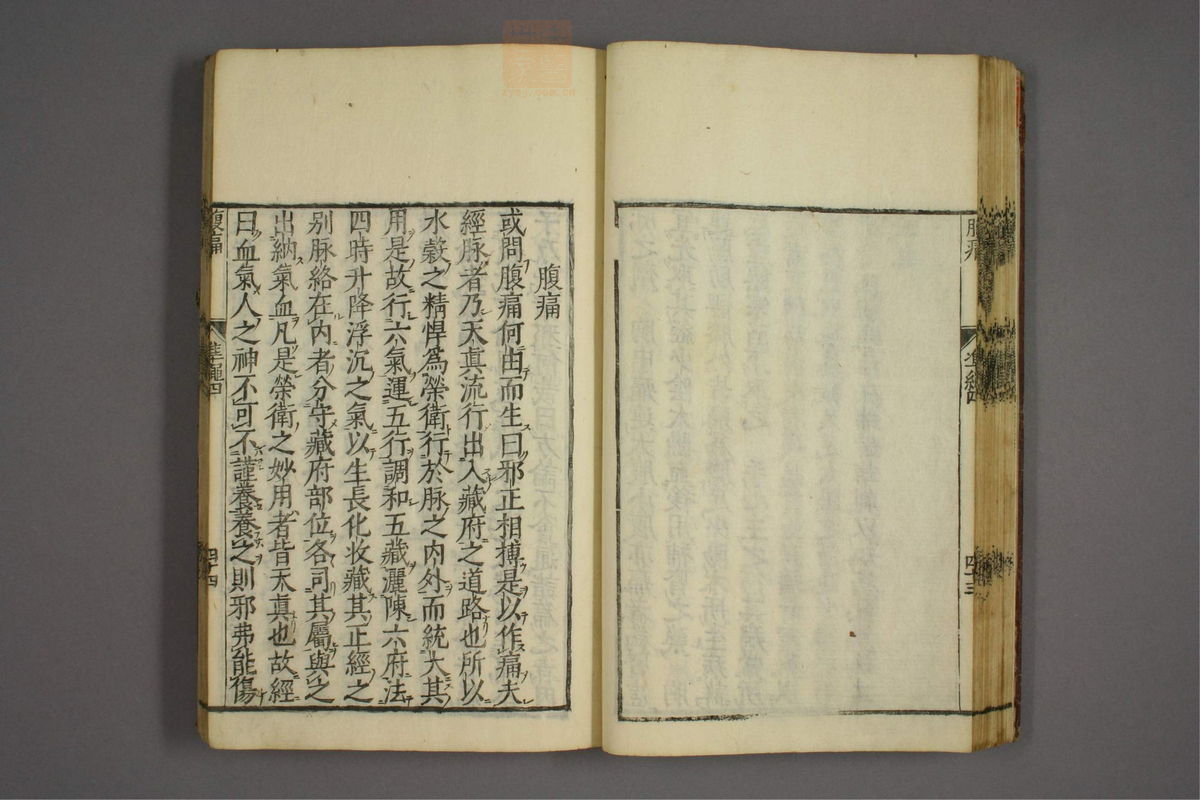 腹痛
準繩四
四十三
腹痛
或問腹痛何由而生曰邪正相搏是以作痛夫
經脉者乃天真流行出入藏府之道路也所以
水榖之精悍爲榮衛行於脉之内外而統大其
用是故行六氣運五行調和五藏灑陳六府法
四時升降浮沉之氣以生長化收藏其正經之
别脉絡在内者分守藏府部位各司其屬與之
出納氣血凡是榮衛之妙用者皆天真也故經
曰血氣人之神不可不謹養養之則邪弗能傷
腹痛
準繩四
四十四
zysj.com.cn